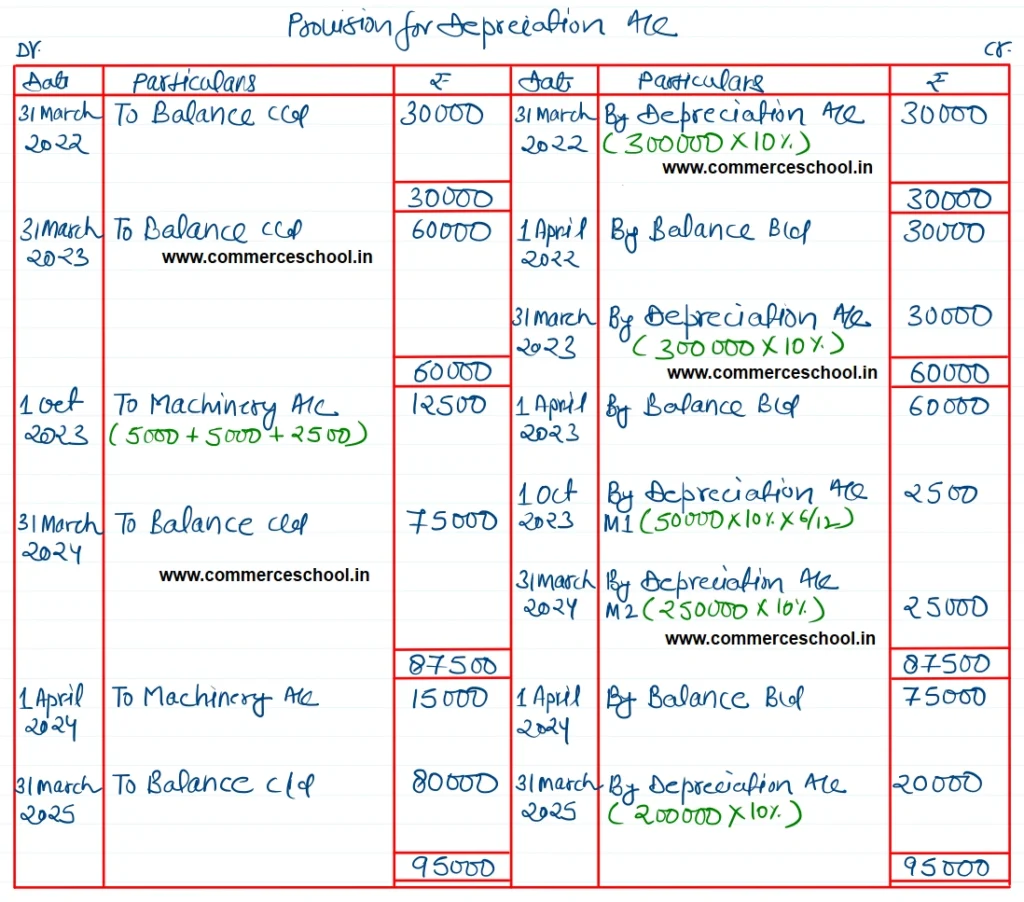 Provision for Depreciation A/c
Dr.
Cr.
Date Particulars ₹ Date Particulars ₹
31 March To Balance c/d 30000 31 March By Depreciation A/c 30000
2022 2022 (300000 X 10%)
www.commerceschool.in
30000 30000
31 March To Balance c/d 60000 1 April By Balance B/d 30000
2023 www.commerceschool.in 2022
31 March By Depreciation A/c 30000
2023 (300000 X 10%)
60000 www.commerceschool.in 60000
1 Oct To Machinery A/c 12500 1 April By Balance B/d 60000
2023 (5000 + 5000 + 2500) 2023
1 Oct By Depreciation A/c 2500
31 March To Balance c/d 75000 2023 M1 (50000 X 10% X 6/12)
2024
www.commerceschool.in 31 March By Depreciation A/c
2024 M2 (250000 X 10%) 25000
www.commerceschool.in
87500 87500
1 April To Machinery A/c 15000 1 April By Balance B/d 75000
2024 2024
31 March To Balance c/d 80000 31 March By Depreciation A/c 20000
2025 2025 (200000 X 10%)
95000 95000